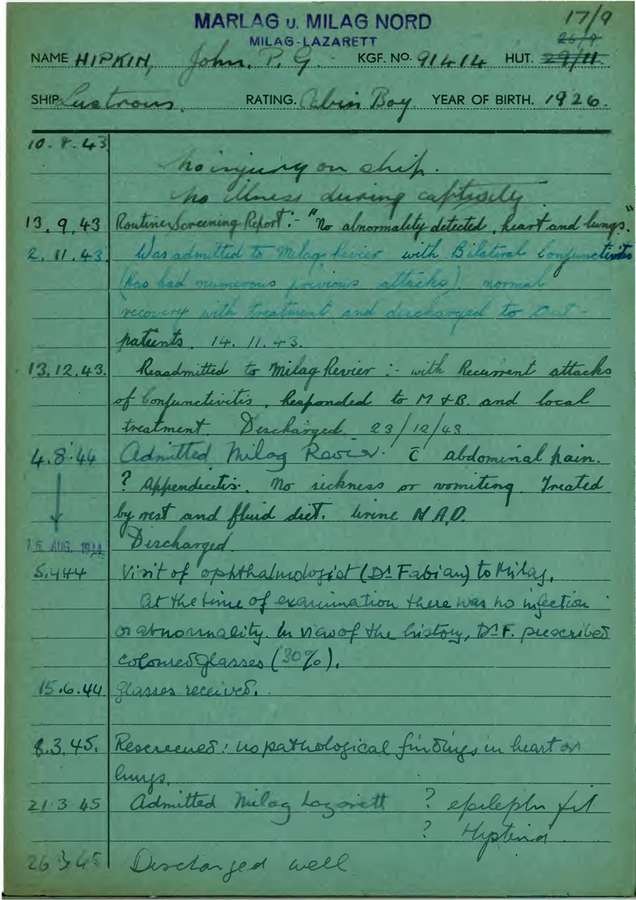 MARLAG U. MILAG NORD
MILAG-LAZARETT
17/9
26/9
NAME HIPKIN, John. P. G. KGF. NO. 91414 HUT. 29/11
SHIP Lustrous. RATING. Cabin Boy YEAR OF BIRTH. 1926.
10.8.43 No injury on ship.
No illness during captivity
13.9.43 Routine Screening Report :- "No abnormality detected, heart and lungs."
2.11.43 Was admitted to Milag Revier with Bilateral Conjunctivitis
(has had numerous previous attacks). normal
recovery with treatment and discharged to Out-
patients. 14.11.43.
13.12.43. Readmitted to Milag Revier :- with Recurrent attacks
of Conjunctivitis. Responded to M & B. and local
treatment. Discharged 23/12/43
4.8.44 Admitted Milag Revier. c̄ abdominal pain.
? Appendicitis. No sickness or vomiting. Treated
by rest and fluid diet. Urine N.A.D.
15 AUG. 1944 Discharged.
5.4.44 Visit of ophthalmologist (Dr Fabian) to Milag.
At the time of examination there was no infection
or abnormality. In view of the history, Dr F. prescribed
coloured glasses (30%).
15.6.44 Glasses received.
8.3.45. Rescreened: no pathological findings in heart or
lungs.
21.3.45 Admitted Milag Lazarett ? epileptic fit
?
26.3.45 Discharged well